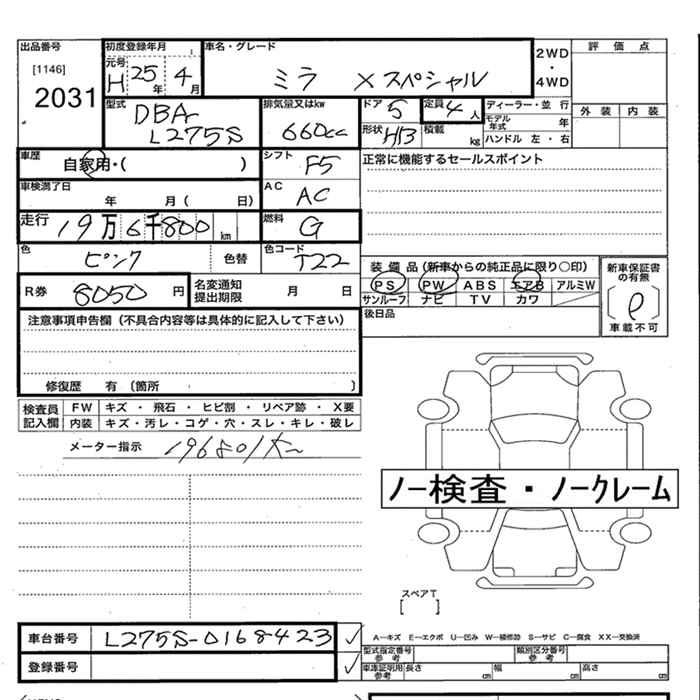 出品番号
[1146]
2031
初度登録年月
元号
H 25年 4月
車名・グレード
ミラ Xスペシャル
2WD
・
4WD
評価点
外装 内装
型式
DBA-
L275S
排気量又はkw
660cc
ドア 5
形状 H/B
定員 4人
積載 kg
ディーラー・並行
モデル年式 年
ハンドル 左・右
車歴
自家用・( )
シフト F5
正常に機能するセールスポイント
車検満了日
年 月( 日)
AC AC
走行 19万6千800km
燃料 G
色 ピンク 色替
色コード T22
R券 8050円
名変通知
提出期限
月 日
装備品(新車からの純正品に限り○印)
PS PW ABS エアB アルミW
サンルーフ ナビ TV カワ
新車保証書
の有無
車載不可
後日品
注意事項申告欄(不具合内容等は具体的に記入して下さい)
修復歴 有〔箇所 〕
検査員
記入欄
FW キズ・飛石・ヒビ割・リペア跡・X要
内装 キズ・汚レ・コゲ・穴・スレ・キレ・破レ
メーター指示 196801
ノー検査・ノークレーム
スペアT
[ ]
車台番号 L275S-0168423 ✓
登録番号 ✓
A―キズ E―エクボ U―凹み W―補修跡 S―サビ C―腐食 XX―交換済
型式指定番号
参考
類別区分番号
参考
車庫証明用
参考
長さ cm 幅 cm 高さ cm